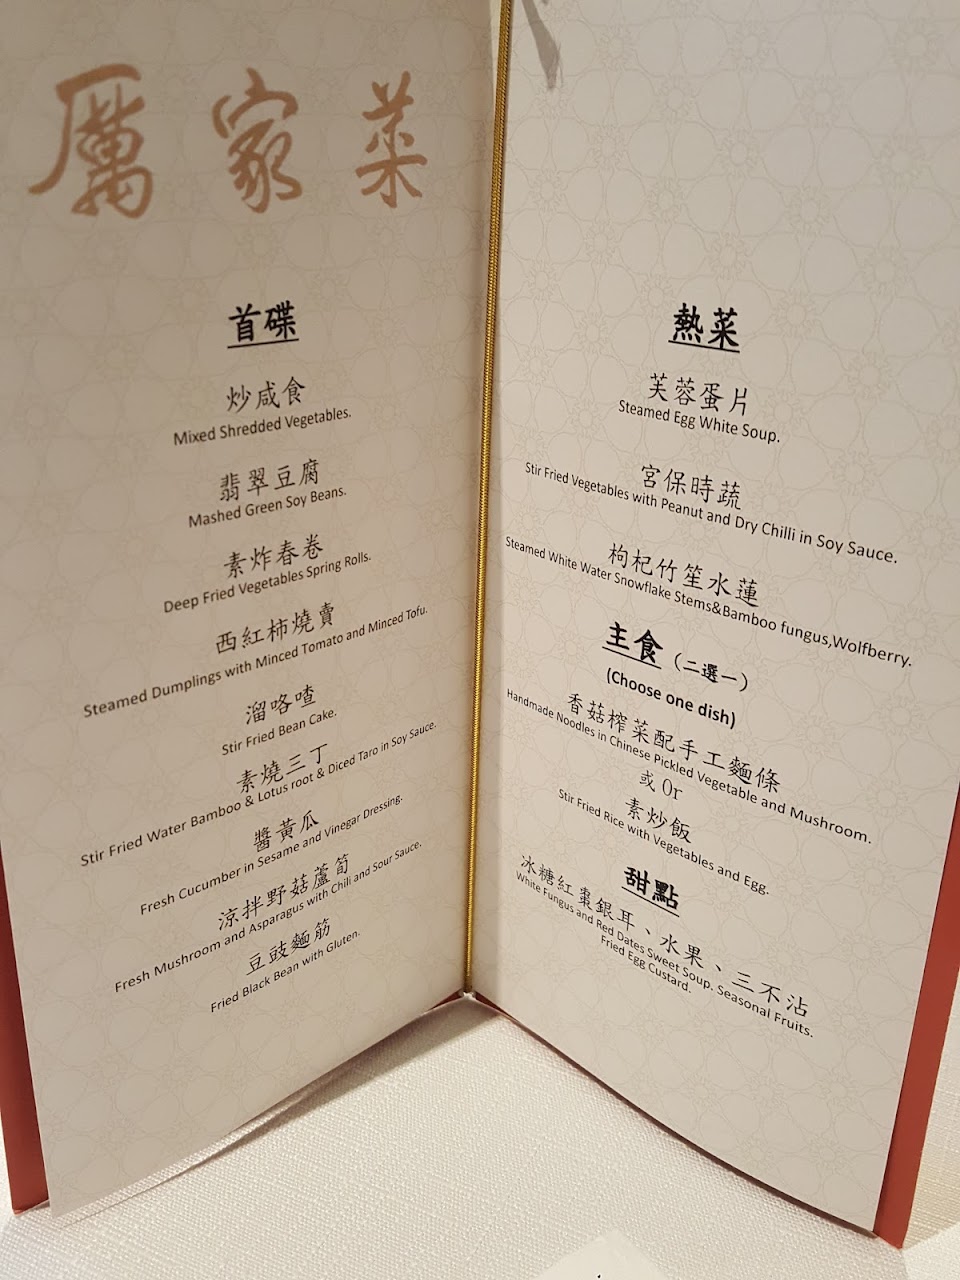 厲家菜
首碟
炒咸食
Mixed Shredded Vegetables.
翡翠豆腐
Mashed Green Soy Beans.
素炸春卷
Deep Fried Vegetables Spring Rolls.
西紅柿燒賣
Steamed Dumplings with Minced Tomato and Minced Tofu.
溜咯喳
Stir Fried Bean Cake.
素燒三丁
Stir Fried Water Bamboo & Lotus root & Diced Taro in Soy Sauce.
醬黃瓜
Fresh Cucumber in Sesame and Vinegar Dressing.
涼拌野菇蘆筍
Fresh Mushroom and Asparagus with Chili and Sour Sauce.
豆豉麵筋
Fried Black Bean with Gluten.
熱菜
芙蓉蛋片
Steamed Egg White Soup.
宮保時蔬
Stir Fried Vegetables with Peanut and Dry Chilli in Soy Sauce.
枸杞竹笙水蓮
Steamed White Water Snowflake Stems&Bamboo fungus,Wolfberry.
主食（二選一）
(Choose one dish)
香菇榨菜配手工麵條
Handmade Noodles in Chinese Pickled Vegetable and Mushroom.
或 Or
素炒飯
Stir Fried Rice with Vegetables and Egg.
甜點
冰糖紅棗銀耳、水果、三不沾
White Fungus and Red Dates Sweet Soup. Seasonal Fruits.
Fried Egg Custard.